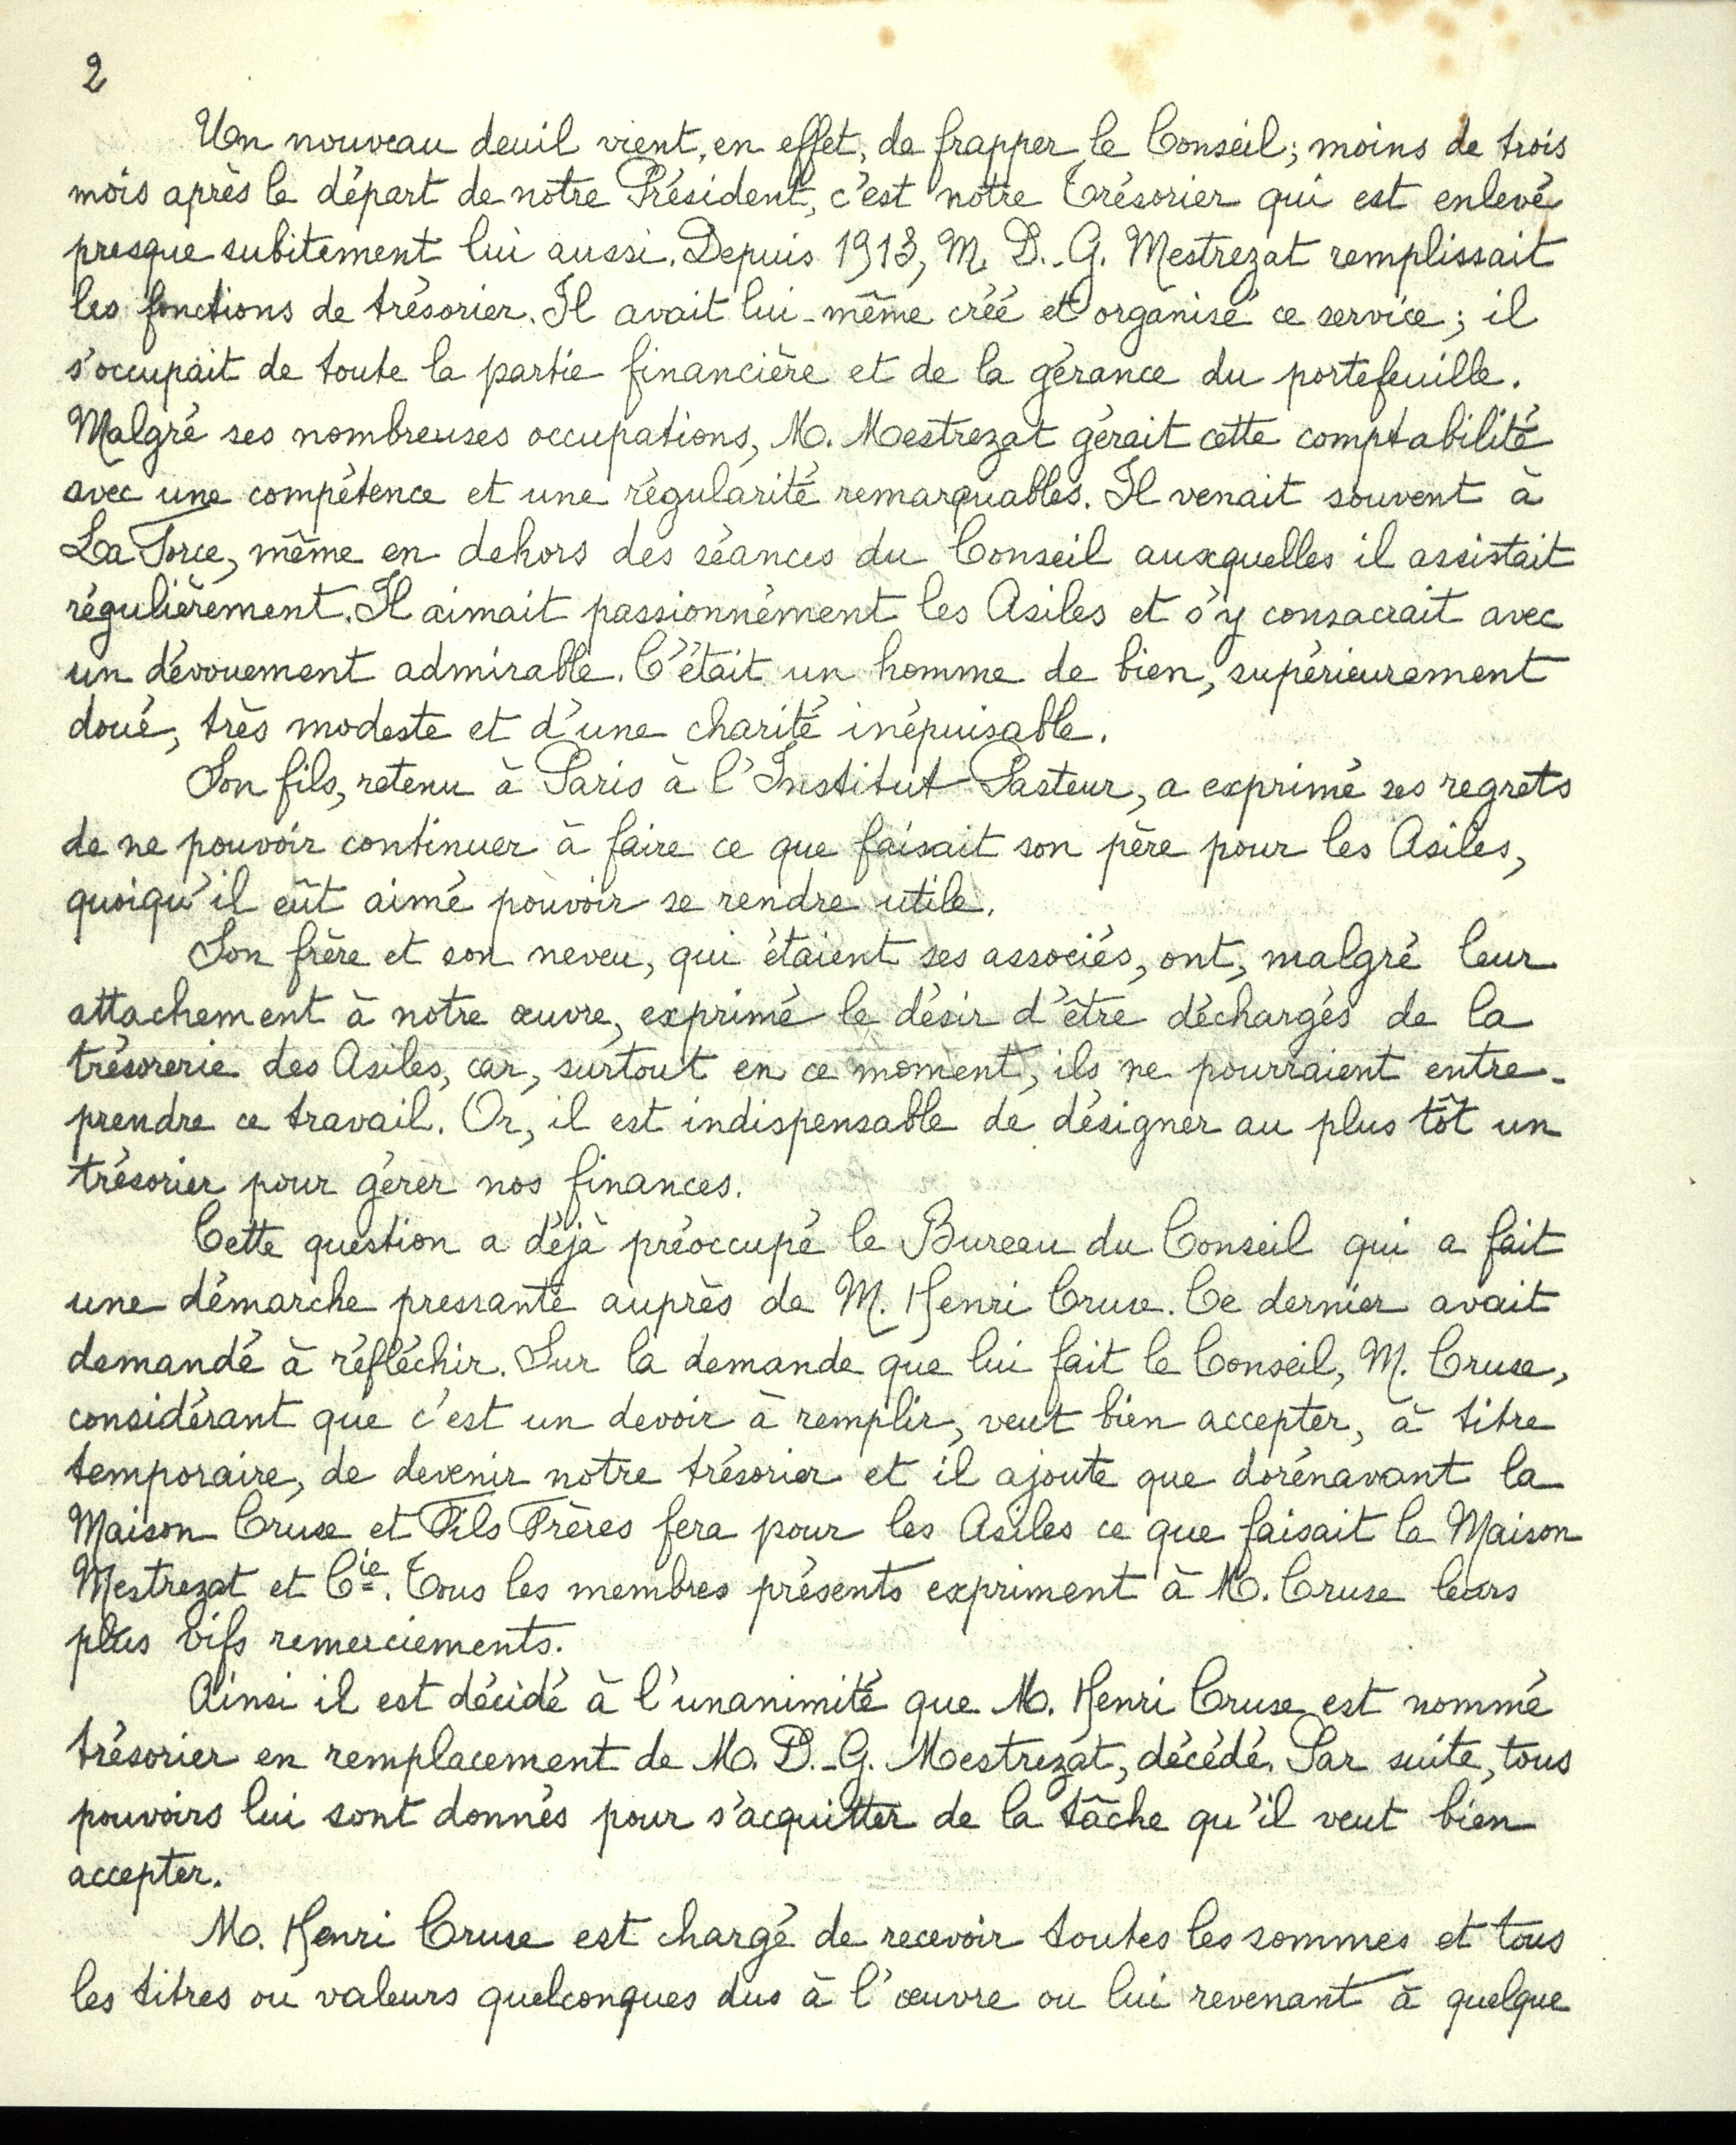 2
Un nouveau deuil vient, en effet, de frapper le Conseil ; moins de trois
mois après le départ de notre Président, c'est notre Trésorier qui est enlevé
presque subitement lui aussi. Depuis 1913, M. D.-G. Mestrezat remplissait
les fonctions de trésorier. Il avait lui-même créé et organisé ce service ; il
s'occupait de toute la partie financière et de la gérance du portefeuille.
Malgré ses nombreuses occupations, M. Mestrezat gérait cette comptabilité
avec une compétence et une régularité remarquables. Il venait souvent à
La Force, même en dehors des séances du Conseil auxquelles il assistait
régulièrement. Il aimait passionnément les Asiles et s'y consacrait avec
un dévouement admirable. C'était un homme de bien, supérieurement
doué, très modeste et d'une charité inépuisable.
Son fils, retenu à Paris à l'Institut Pasteur, a exprimé ses regrets
de ne pouvoir continuer à faire ce que faisait son père pour les Asiles,
quoiqu'il eût aimé pouvoir se rendre utile.
Son frère et son neveu, qui étaient ses associés, ont, malgré leur
attachement à notre œuvre, exprimé le désir d'être déchargés de la
trésorerie des Asiles, car, surtout en ce moment, ils ne pourraient entre-
prendre ce travail. Or, il est indispensable de désigner au plus tôt un
trésorier pour gérer nos finances.
Cette question a déjà préoccupé le Bureau du Conseil qui a fait
une démarche pressante auprès de M. Henri Cruse. Ce dernier avait
demandé à réfléchir. Sur la demande que lui fait le Conseil, M. Cruse,
considérant que c'est un devoir à remplir, veut bien accepter, à titre
temporaire, de devenir notre trésorier et il ajoute que dorénavant la
Maison Cruse et Fils Frères fera pour les Asiles ce que faisait la Maison
Mestrezat et Cie. Tous les membres présents expriment à M. Cruse leurs
plus vifs remerciements.
Ainsi il est décidé à l'unanimité que M. Henri Cruse est nommé
trésorier en remplacement de M. D.-G. Mestrezat, décédé. Par suite, tous
pouvoirs lui sont donnés pour s'acquitter de la tâche qu'il veut bien
accepter.
M. Henri Cruse est chargé de recevoir toutes les sommes et tous
les titres ou valeurs quelconques dus à l'œuvre ou lui revenant à quelque